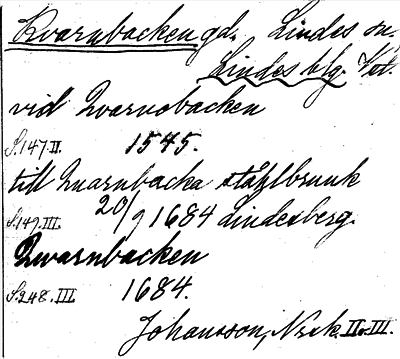 Kvarnbacken gd. Lindes sn.
Lindes blg. Vst.
vid Qvarnobacken
S. 147. II. 1545.
till Quarnbacka ståhlbruuk
S. 149. III. 20/9 1684 Lindesberg.
Qwarnbacken
S. 248. III. 1684.
Johansson, Nrsk. II o. III.